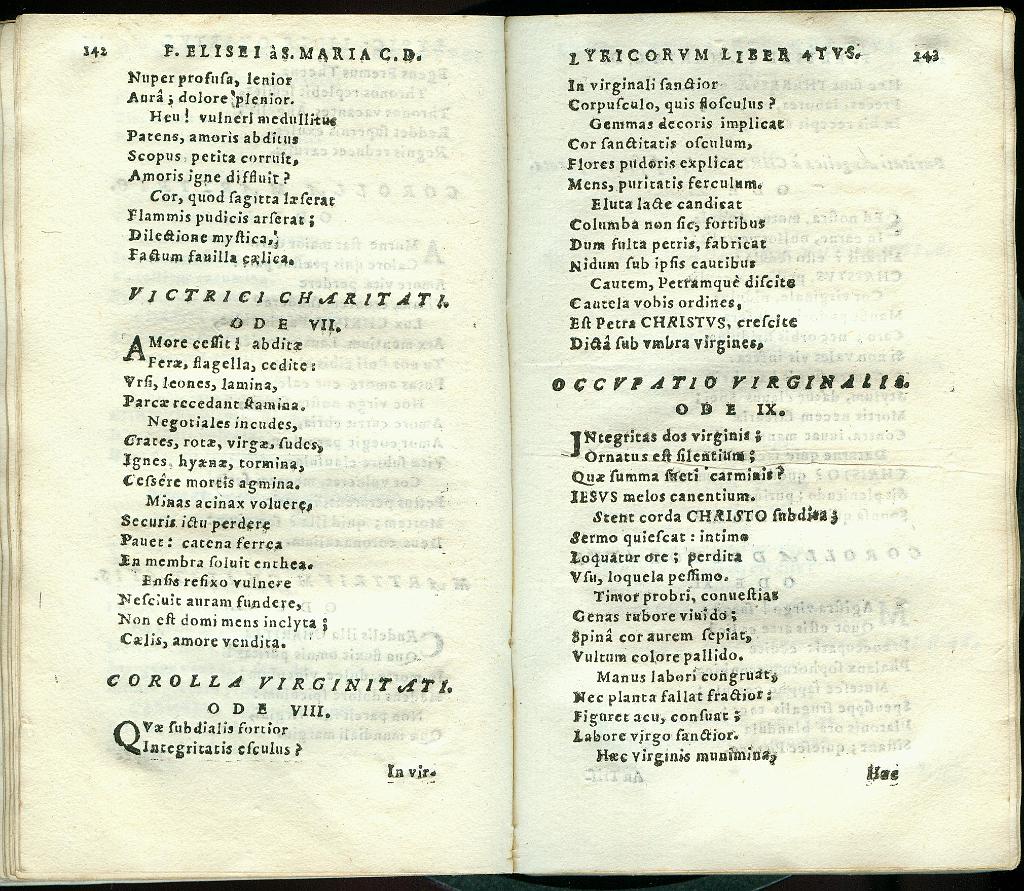 342 F. ELISEI à S. MARIA C. D.
Nuper profuſa, lenior
Aurâ; dolore plenior.
Heu! vulneri medullitus
Patens, amoris abditus
Scopus, petita corruit,
Amoris igne diffluit?
Cor, quod ſagitta læſerat
Flammis pudicis arſerat;
Dilectione myſtica,
Factum fauilla cælica.
VICTRICI CHARITATI.
ODE VII.
AMore ceſſit! abditæ
Feræ, flagella, cedite:
Vrſi, leones, lamina,
Parcæ recedant ſtamina.
Negotiales incudes,
Crates, rotæ, virgæ, ſudes,
Ignes, hyænæ, tormina,
Ceſſêre mortis agmina.
Minas acinax voluere,
Securis ictu perdere
Pauet: catena ferrea
En membra ſoluit enthea.
Enſis refixo vulnere
Neſciuit auram fundere,
Non eſt domi mens inclyta;
Cælis, amore vendita.
COROLLA VIRGINITATI.
ODE VIII.
QVæ ſubdialis fortior
Integritatis eſculus?
In vir-
LYRICORVM LIBER 4TVS. 343
In virginali ſanctior
Corpuſculo, quis floſculus?
Gemmas decoris implicat
Cor ſanctitatis oſculum,
Flores pudoris explicat
Mens, puritatis ferculum.
Eluta lacte candicat
Columba non ſic, fortibus
Dum fulta petris, fabricat
Nidum ſub ipſis cautibus
Cautem, Petramquè diſcite
Cautela vobis ordines,
Eſt Petra CHRISTVS, creſcite
Dictâ ſub vmbra virgines,
OCCVPATIO VIRGINALIS.
ODE IX.
INtegritas dos virginis;
Ornatus eſt ſilentium;
Quæ ſumma ſueti carminis?
IESVS melos canentium.
Stent corda CHRISTO ſubdita;
Sermo quieſcat: intimo
Loquatur ore; perdita
Vſu, loquela peſſimo.
Timor probri, conueſtias
Genas rubore viuido;
Spinâ cor aurem ſepiat,
Vultum colore pallido.
Manus labori congruat,
Nec planta fallat fractior:
Figuret acu, conſuat;
Labore virgo ſanctior.
Hæc virginis munimina,
Hæc